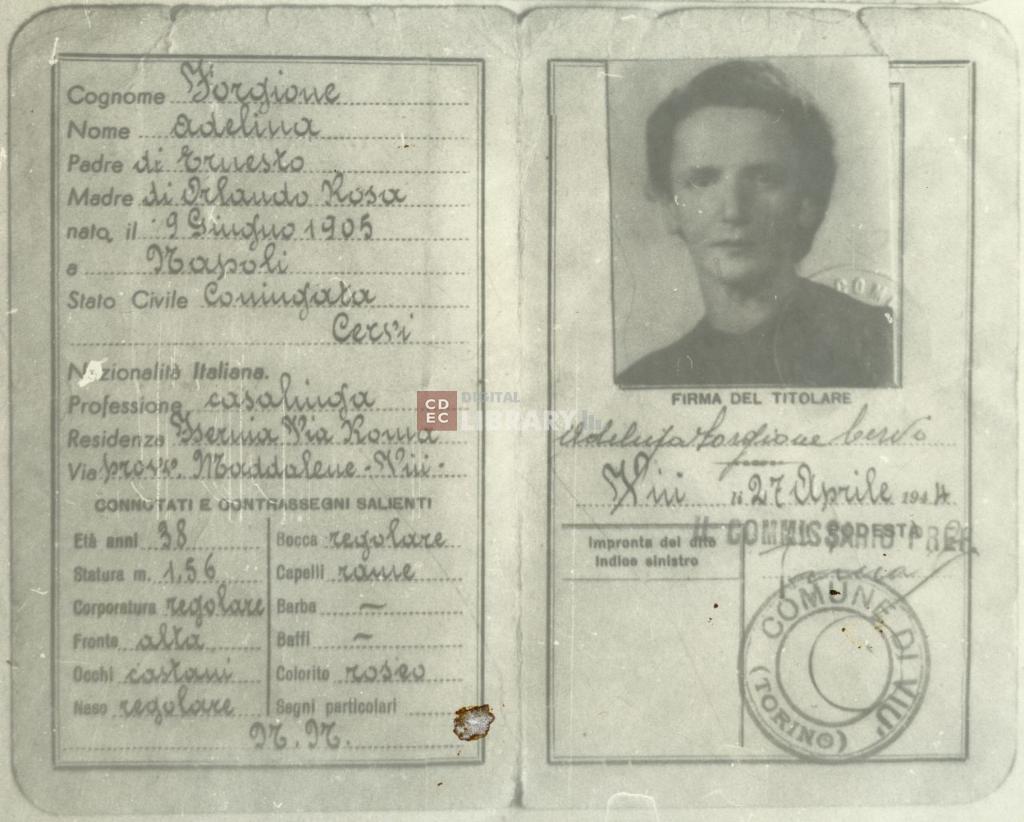 Cognome Forgione
Nome Adelina
Padre di Ernesto
Madre di Orlando Rosa
nata, il 9 Giugno 1905
a Napoli
Stato Civile Coniugata
Cervi
Nazionalità Italiana.
Professione casalinga
Residenza Via Roma
Via prov. Maddalene - Viù -
CONNOTATI E CONTRASSEGNI SALIENTI
Età anni 38
Statura m. 1,56
Corporatura regolare
Fronte alta
Occhi castani
Naso regolare
Bocca regolare
Capelli rame
Barba ~
Baffi ~
Colorito roseo
Segni particolari
N. N.
CDEC DIGITAL LIBRARY
COM
FIRMA DEL TITOLARE
Adelina Forgione Cervi
Viù li 27 Aprile 1944
Impronta del dito
Indice sinistro
IL COMMISSARIO PREF.
PODESTÀ
COMUNE DI VIÙ
(TORINO)